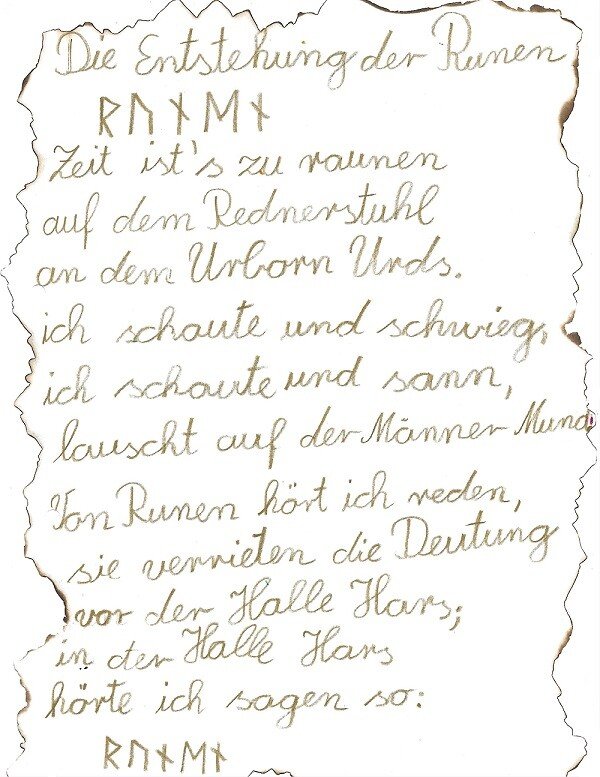 Die Entstehung der Runen
ᚱᚢᚾᛖᚾ
Zeit ist's zu raunen
auf dem Rednerstuhl
an dem Urborn Urds.
ich schaute und schwieg,
ich schaute und sann,
lauscht auf der Männer Mund.
Von Runen hört ich reden,
sie verrieten die Deutung
vor der Halle Hars;
in der Halle Hars
hörte ich sagen so:
ᚱᚢᚾᛖᚾ